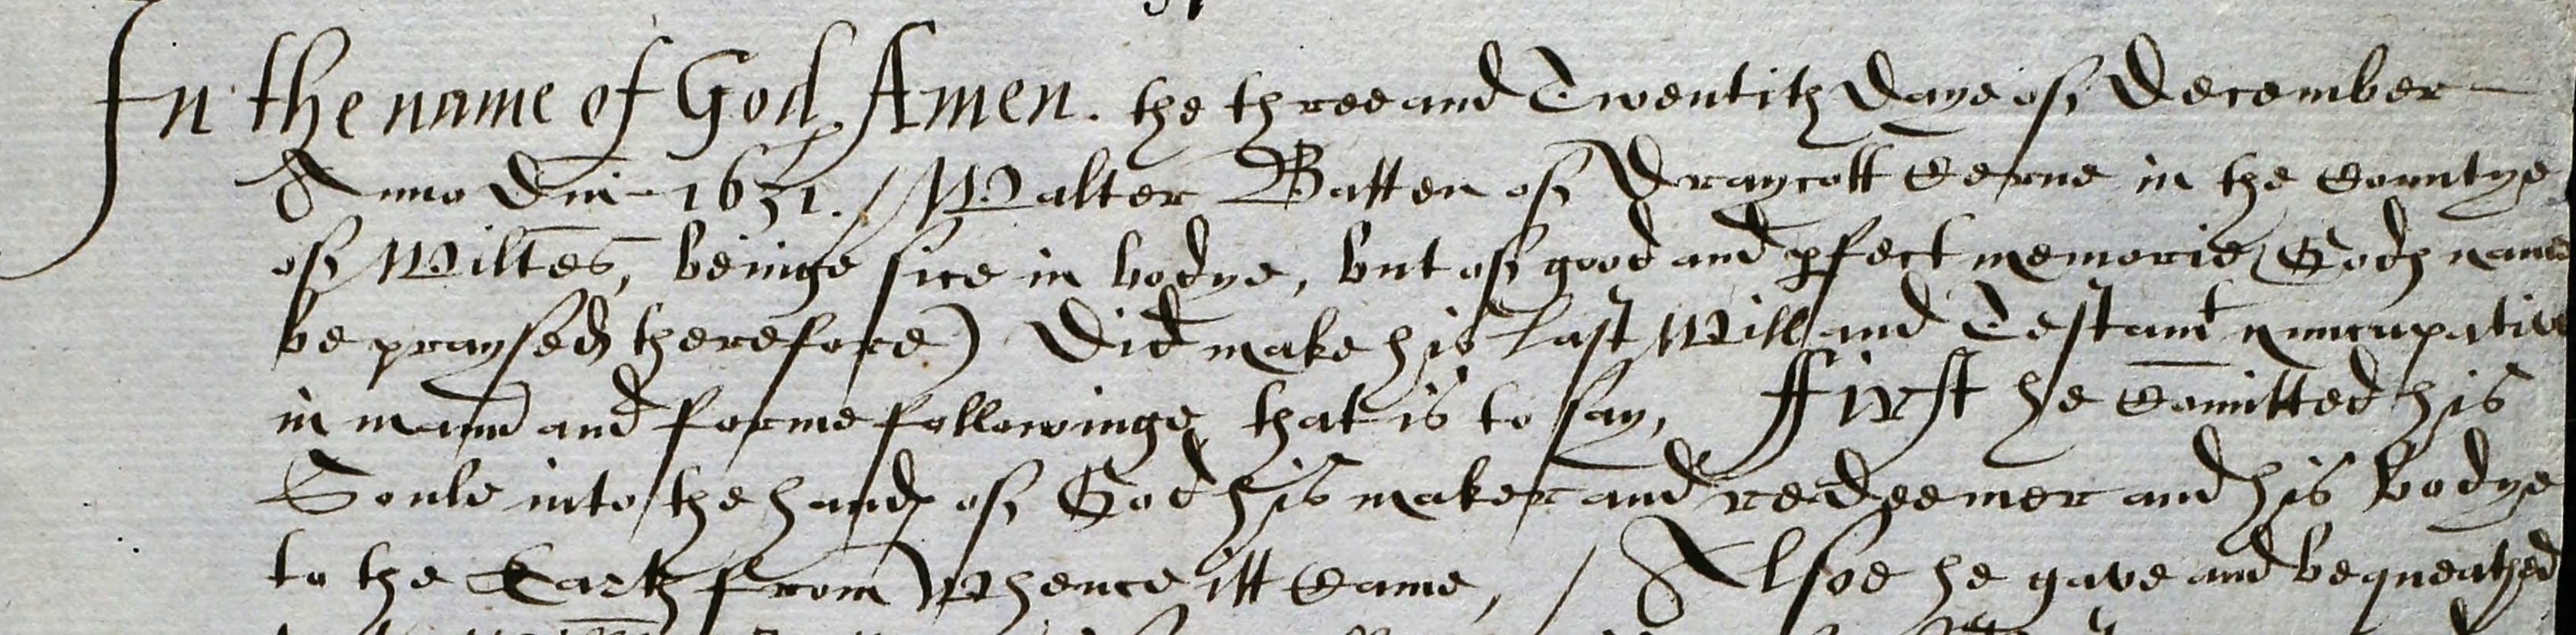 In the name of God Amen. the three and Twentith Daye of December
Anno Dni 1631. / Walter Batten of Draycott Cerne in the Countye
of Wiltes, beinge sice in bodye, but of good and pfect memorie (Gods name
be praysed therefore) Did make his last Will and Testamt nuncupative
in mann and forme followinge that is to say, First he Comitted his
Soule into the hands of God his maker and redeemer and his bodye
to the Earth from Whence itt Came, / Alsoe he gave and bequeathed